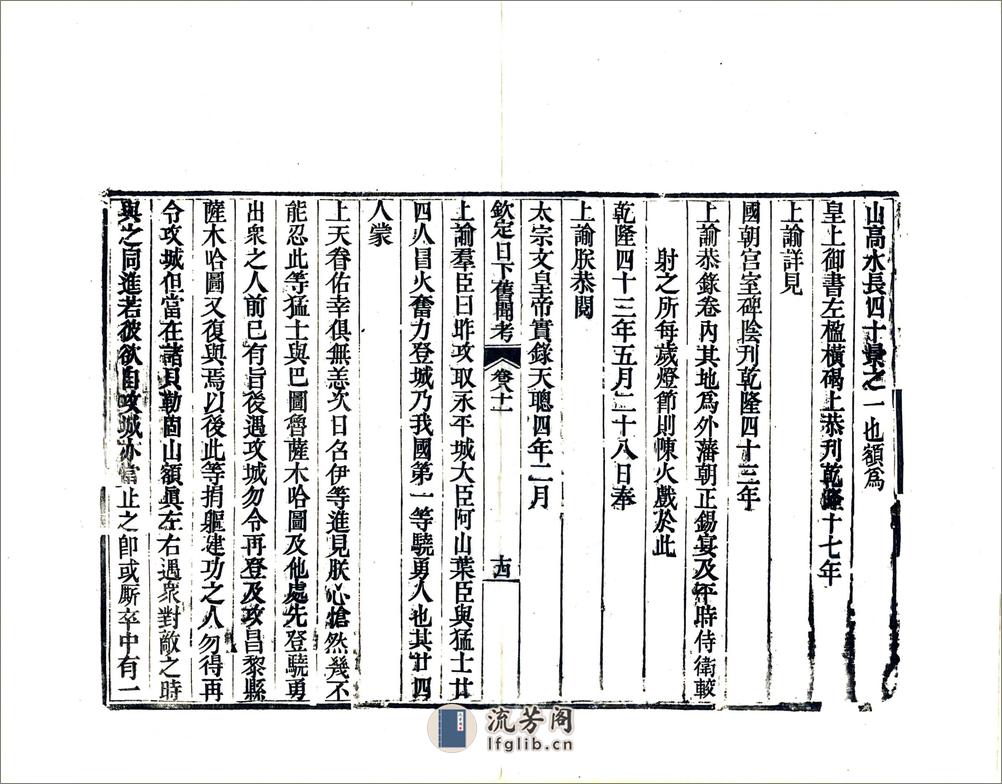 山高水長四十景之一也額爲
皇上御書左楹橫碣上恭刋乾隆十七年
上諭詳見
國朝宫室碑陰刋乾隆四十三年
上諭恭錄卷内其地爲外藩朝正錫宴及平時侍衛較
射之所每歲燈節則陳火戲於此
乾隆四十三年五月二十八日奉
上諭朕恭閲
太宗文皇帝實錄天聰四年二月
欽定日下舊聞考 卷八十一 十四
上諭羣臣曰昨攻取永平城大臣阿山葉臣與猛士廿
四人冒火奮力登城乃我國第一等驍勇人也其廿四
人蒙
上天眷佑幸俱無恙次日召伊等進見朕心愴然幾不
能忍此等猛士與巴圖魯薩木哈圖及他處先登驍勇
出衆之人前已有旨後遇攻城勿令再登及攻昌黎縣
薩木哈圖又復與焉以後此等捐軀建功之人勿得再
令攻城但當在諸貝勒固山額眞左右遇衆對敵之時
與之同進若彼欲自攻城亦當止之卽或厮卒中有一
流芳阁
lfglib.cn